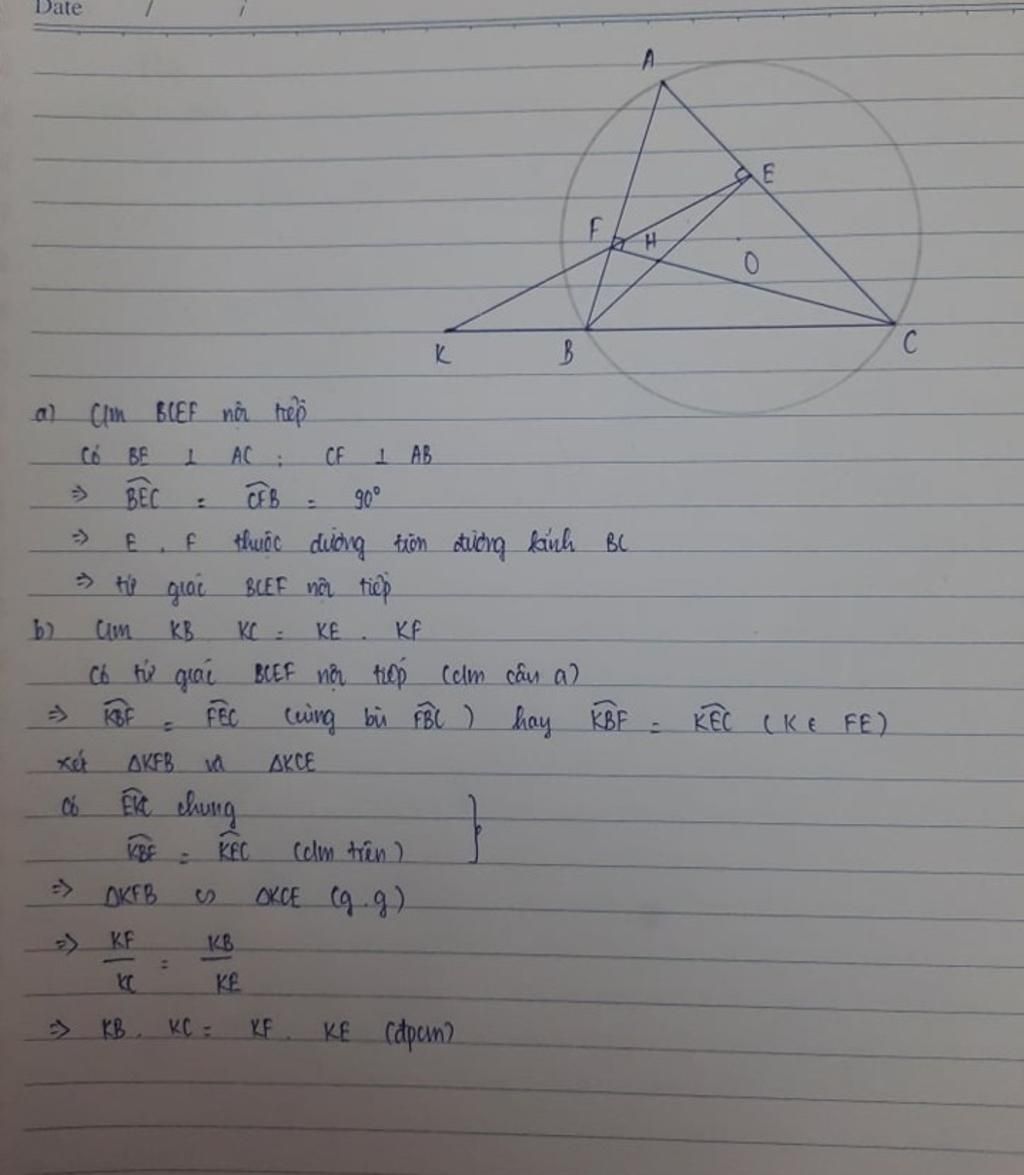 Date / /
A
E
F H
O
K B C
a) Cm BCEF nội tiếp
Có BE ⊥ AC ; CF ⊥ AB
⇒ \widehat{BEC} = \widehat{CFB} = 90°
⇒ E, F thuộc đường tròn đường kính BC
⇒ tứ giác BCEF nội tiếp
b) Cm KB . KC = KE . KF
Có tứ giác BCEF nội tiếp (cm câu a)
⇒ \widehat{KBF} = \widehat{FEC} (cùng bù \widehat{FBC}) hay \widehat{KBF} = \widehat{KEC} (K ∈ FE)
xét ΔKFB và ΔKCE
Có \widehat{EKC} chung
\widehat{KBF} = \widehat{KEC} (cm trên) }
⇒ ΔKFB ∽ ΔKCE (g.g)
⇒ KF/KC = KB/KE
⇒ KB . KC = KF . KE (đpcm)